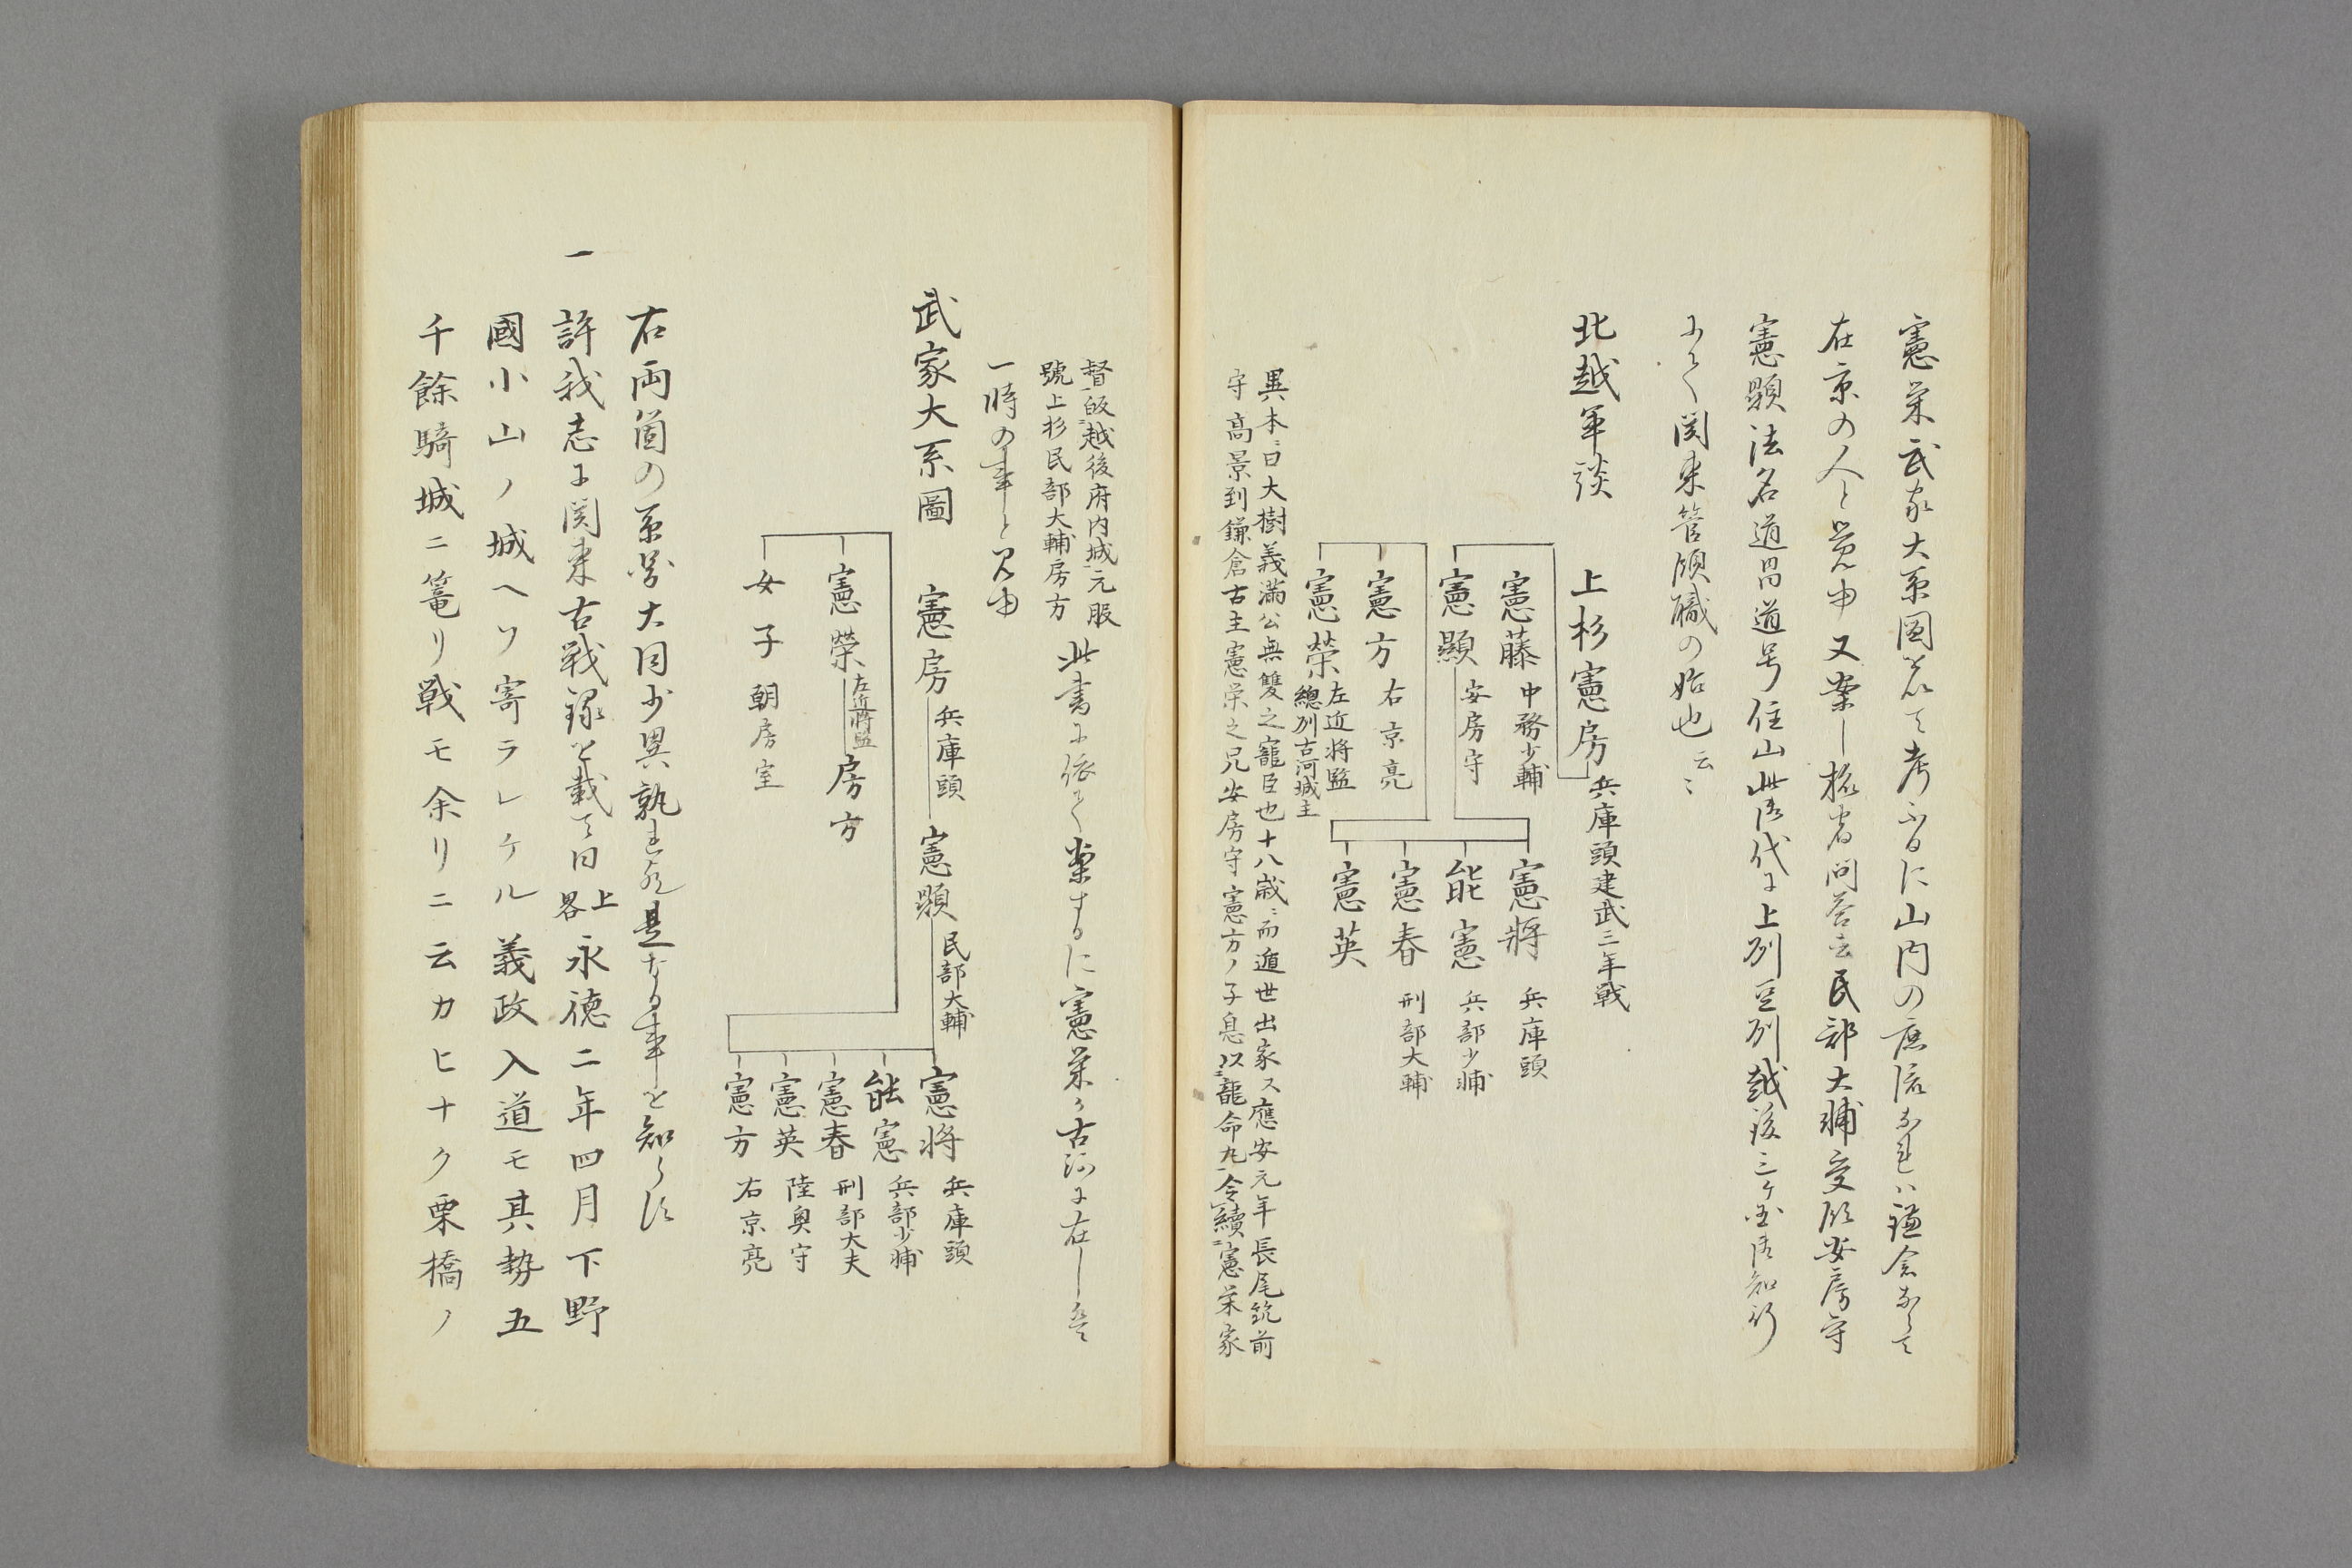 憲栄武家大系圖を以て考ふるに山内の庶流なれハ鎌倉なくて
在京の人と覚申又案し桜省問答云民部大輔受領安房守
憲顕法名道昌道号住山此済代に上刕豆刕越後三ケ国落知行
ふく関東管領職の始也云〻
北越軍談
上杉憲房 兵庫頭建武三年戦
憲藤 中務少輔
憲顯 安房守
憲方 右京亮
憲榮 左近将監
總刕古河城主
憲將 兵庫頭
能憲 兵部少輔
憲春 刑部大輔
憲英
異本ニ曰大樹義満公無雙之寵臣也十八歳ニ而遁世出家ス應安元年長尾筑前
守高景到鎌倉古主憲栄之兄安房守憲方ノ子息以龍命丸令續憲栄家
督皈越後府内城元服
號上杉民部大輔房方
此書に依て案するに憲栄ハ古河に在し
一時の事と見申
武家大系圖
憲房 兵庫頭
憲顕 民部大輔
憲榮 左近將監
房方
女子 朝房室
憲将 兵庫頭
能憲 兵部少輔
憲春 刑部大夫
憲英 陸奥守
憲方 右京亮
右両箇の系圖大同少異孰れか是なる事を知らす
一許我志に関東古戦録を載て曰上畧永徳二年四月下野
國小山ノ城ヘソ寄ラレケル義政入道モ其勢五
千餘騎城ニ篭リ戦モ余リニ云カヒナク栗橋ノ